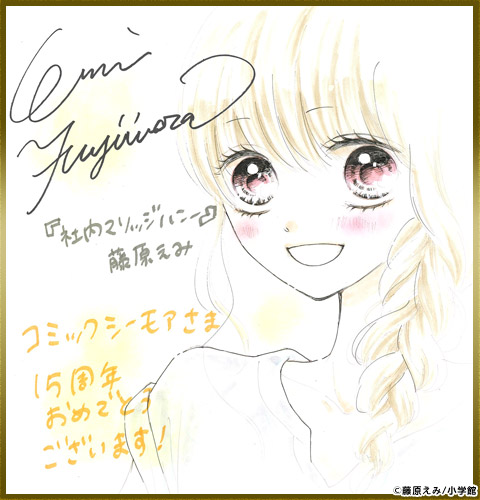 Emi
Fujiwara
『社内マリッジハニー』
藤原えみ
コミックシーモアさま
15周年
おめでとう
ございます!
©藤原えみ/小学館